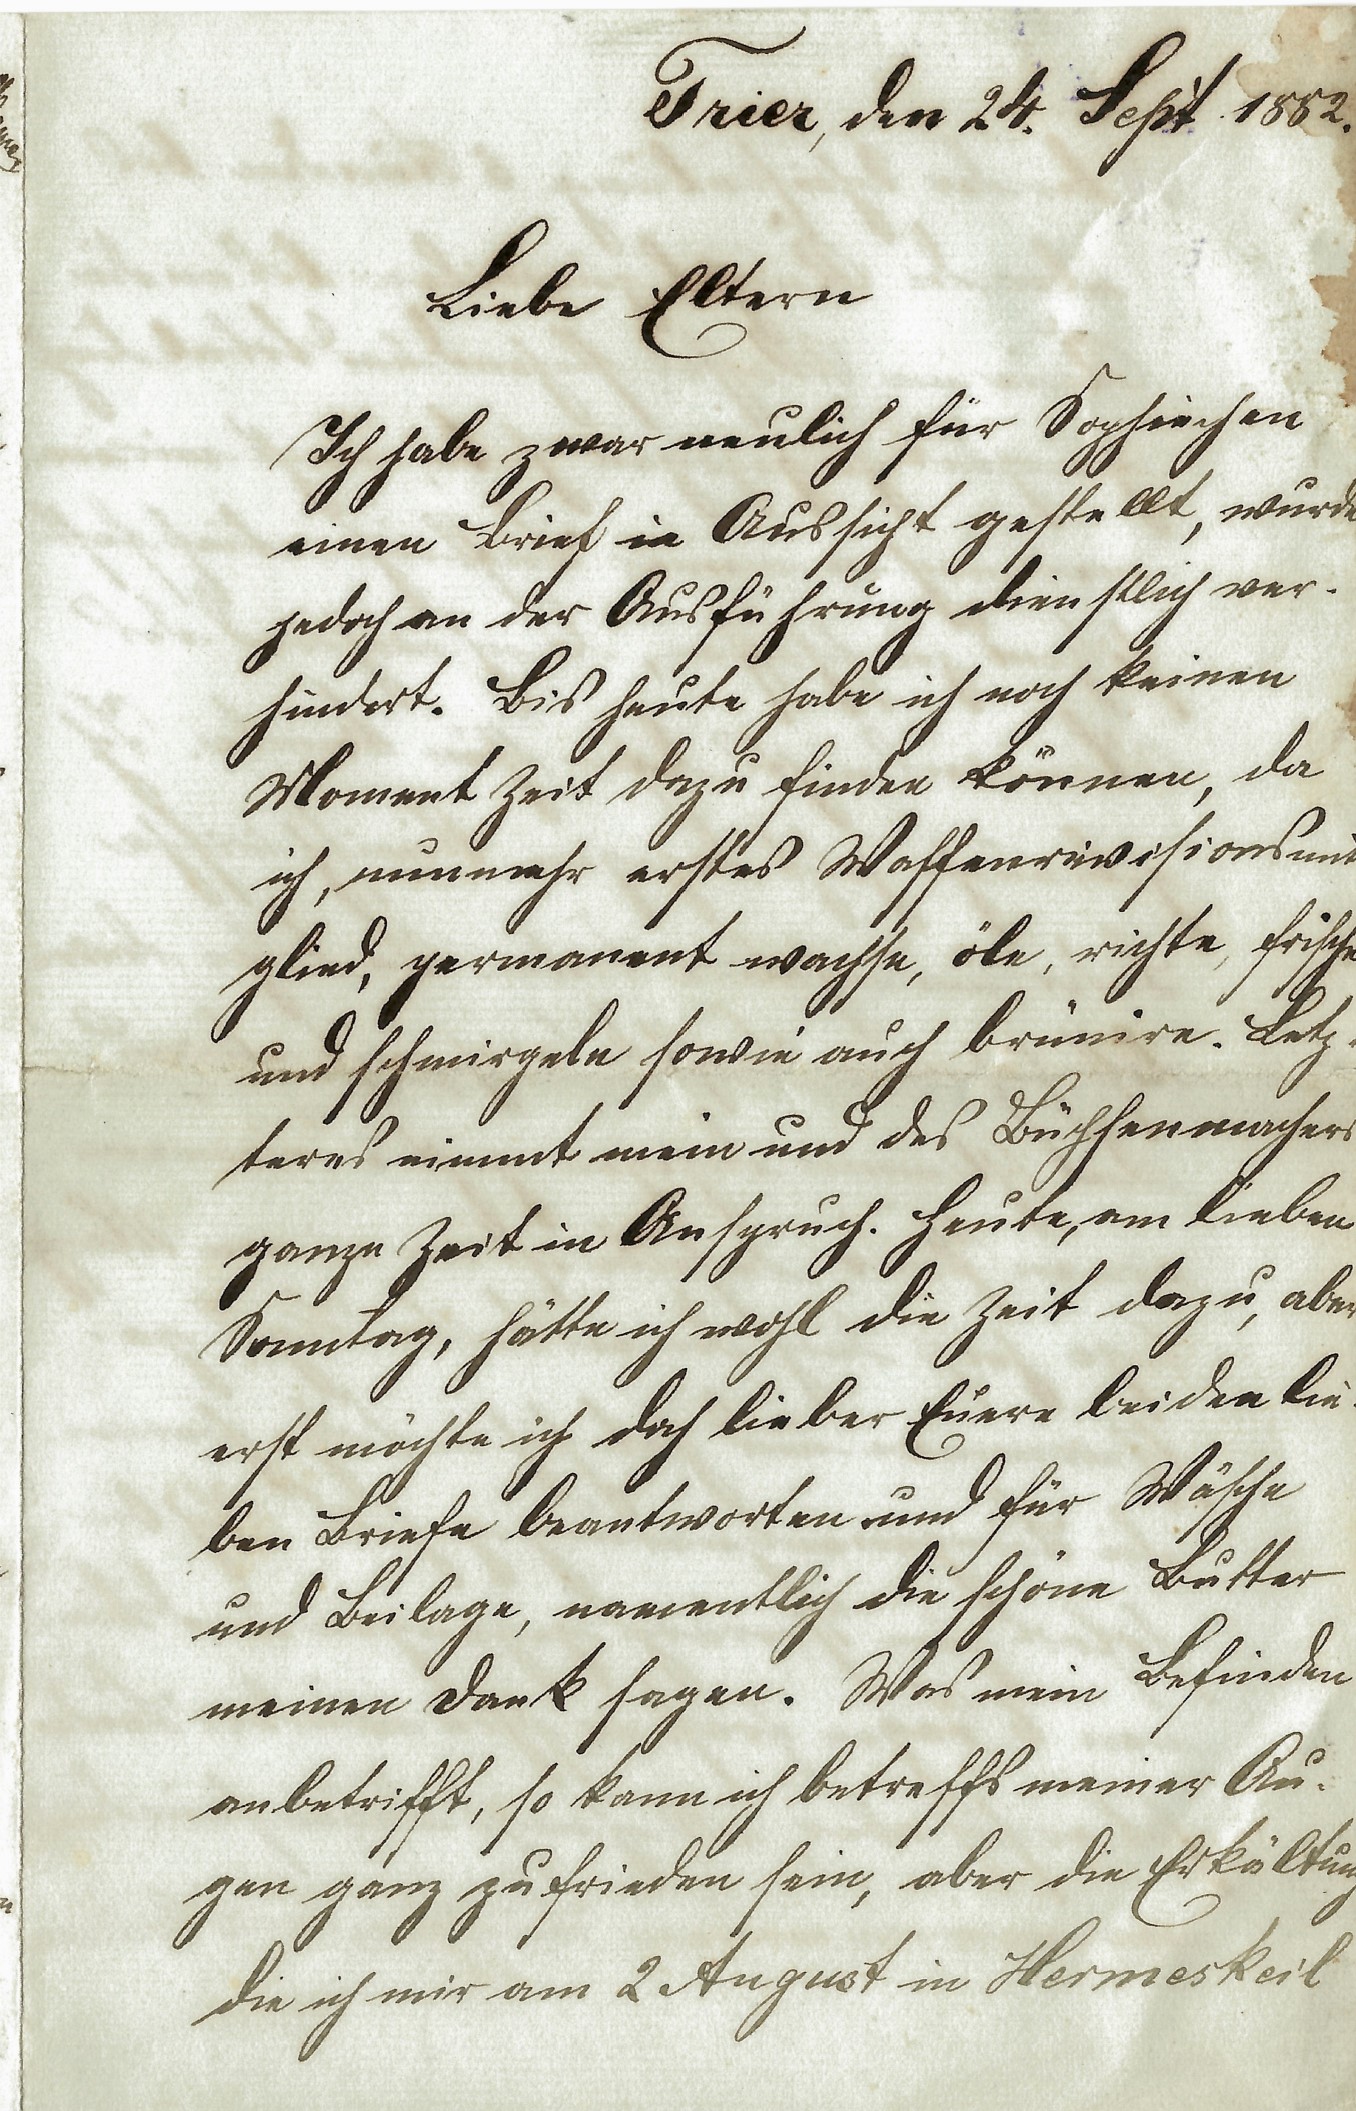 Trier, den 24. Sept 1882.
Liebe Eltern
Ich habe zwar neulich für Sophiechen
einen Brief in Aussicht gestellt, wurde
jedoch an der Ausführung dienstlich ver-
hindert. Bis heute habe ich noch keinen
Moment Zeit dazu finden können, da
ich, nunmehr erstes Waffenrevisionsmit
glied, permanent wachse, öle, richte, frische
und schmirgele sowie auch brünire. Letz-
teres nimmt mein und des Büchsenmachers
ganze Zeit in Anspruch. Heute, am lieben
Sonntag, hätte ich wohl die Zeit dazu, aber
erst möchte ich doch lieber Euere beiden lie-
ben Briefe beantworten und für Wäsche
und Beilage, namentlich die schöne Butter
meinen Dank sagen. Was mein Befinden
anbetrifft, so kann ich betreffs meiner Au-
gen ganz zufrieden sein, aber die Erkältung
die ich mir am 2 August in Hermeskeil